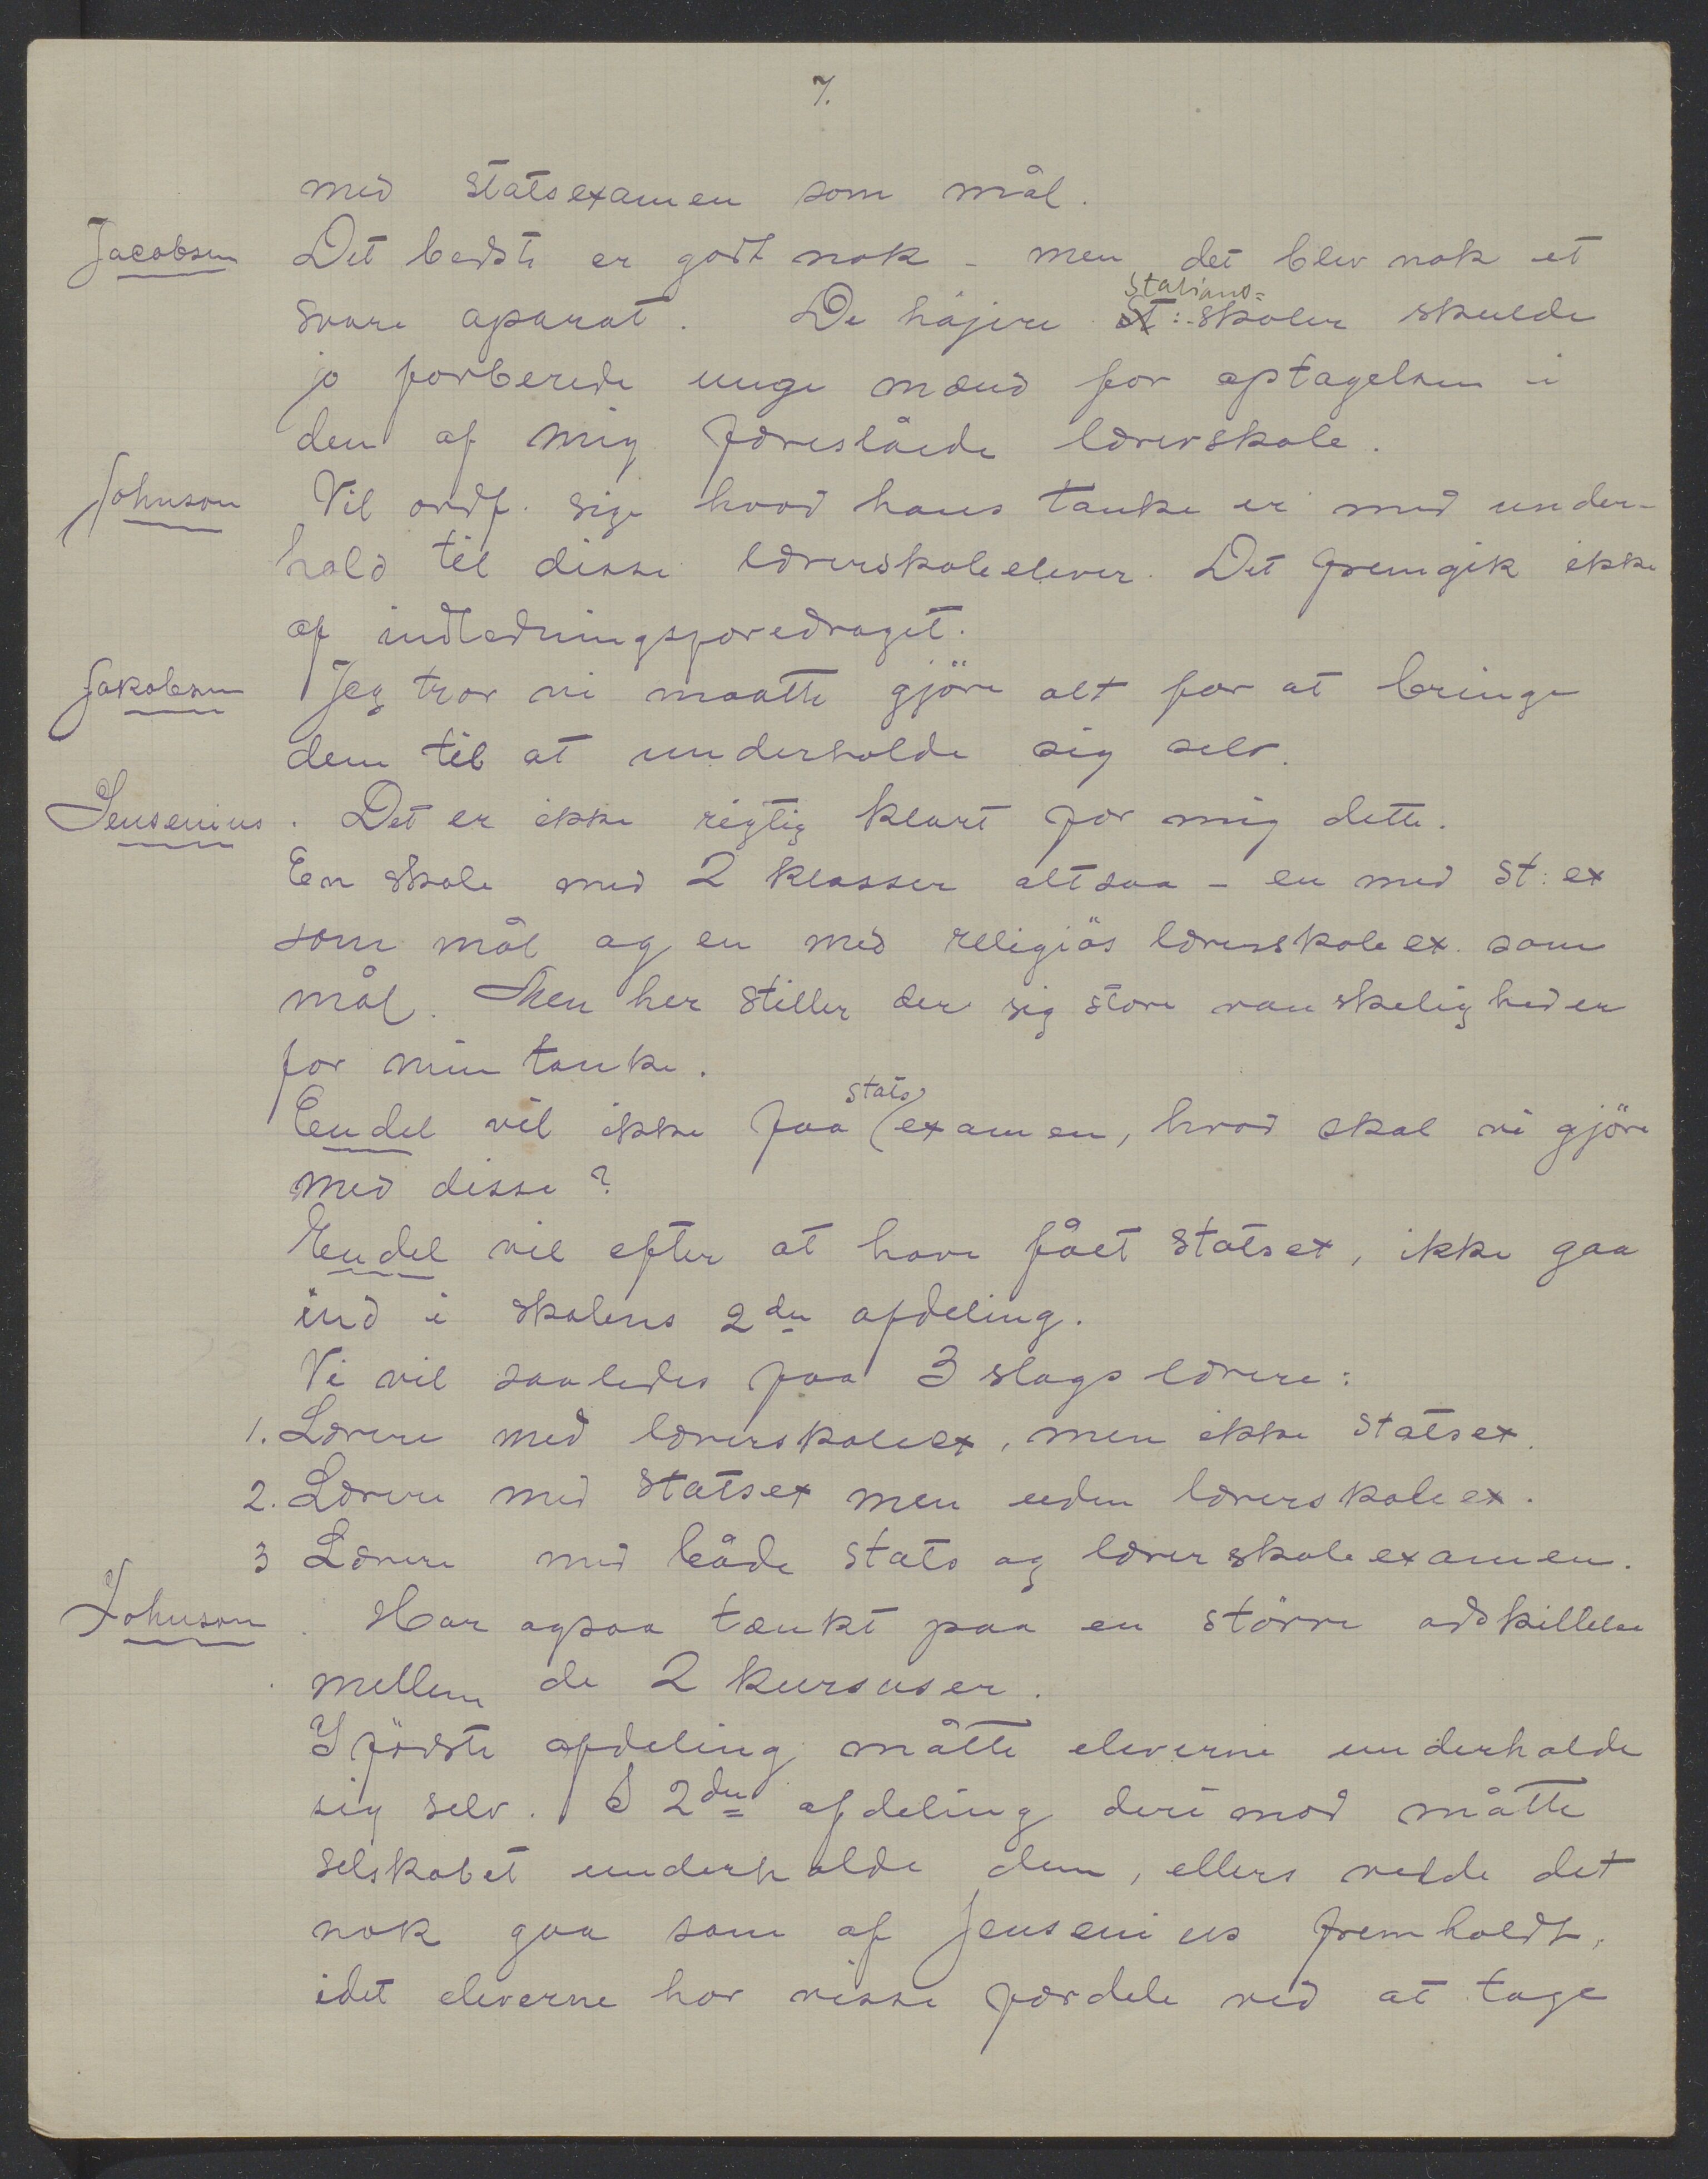 7.
med statsexamen som mål.
Jacobsen Det bedste er godt nok - men det blev nok et
stations=
svare aparat. De højere St:-skoler skulde
jo forberede unge mænd for optagelsen i
den af mig foreslåede lærerskole.
Johnson Vil ordf. sige hvad hans tanke er med under-
hold til disse lærerskoleelever. Det fremgik ikke
af indledningsforedraget.
Jakobsen Jeg tror vi maatte gjöre alt for at bringe
dem til at underholde sig selv.
Jensenius. Det er ikke rigtig klart for mig dette.
En skole med 2 klasser altsaa - en med St: ex
som mål og en med religiös lærerskole ex. som
mål. Men her stiller der sig store vanskeligheder
for min tanke.
stats
Endel vil ikke faa examen, hvad skal vi gjöre
med disse?
Endel vil efter at have fået statsex, ikke gaa
ind i skolens 2den afdeling.
Vi vil saaledes faa 3 slags lærere:
1. Lærere med lærerskoleex, men ikke statsex.
2. Lærere med statsex men uden lærerskoleex.
3 Lærere med både stats og lærerskoleexamen.
Johnson. Har ogsaa tænkt paa en större adskillelse
mellem de 2 kursuser.
I förste afdeling måtte eleverne underholde
sig selv. I 2den afdeling derimod måtte
selskabet underholde dem, ellers vilde det
nok gaa som af Jensenius fremholdt,
idet eleverne har visse fordele ved at tage